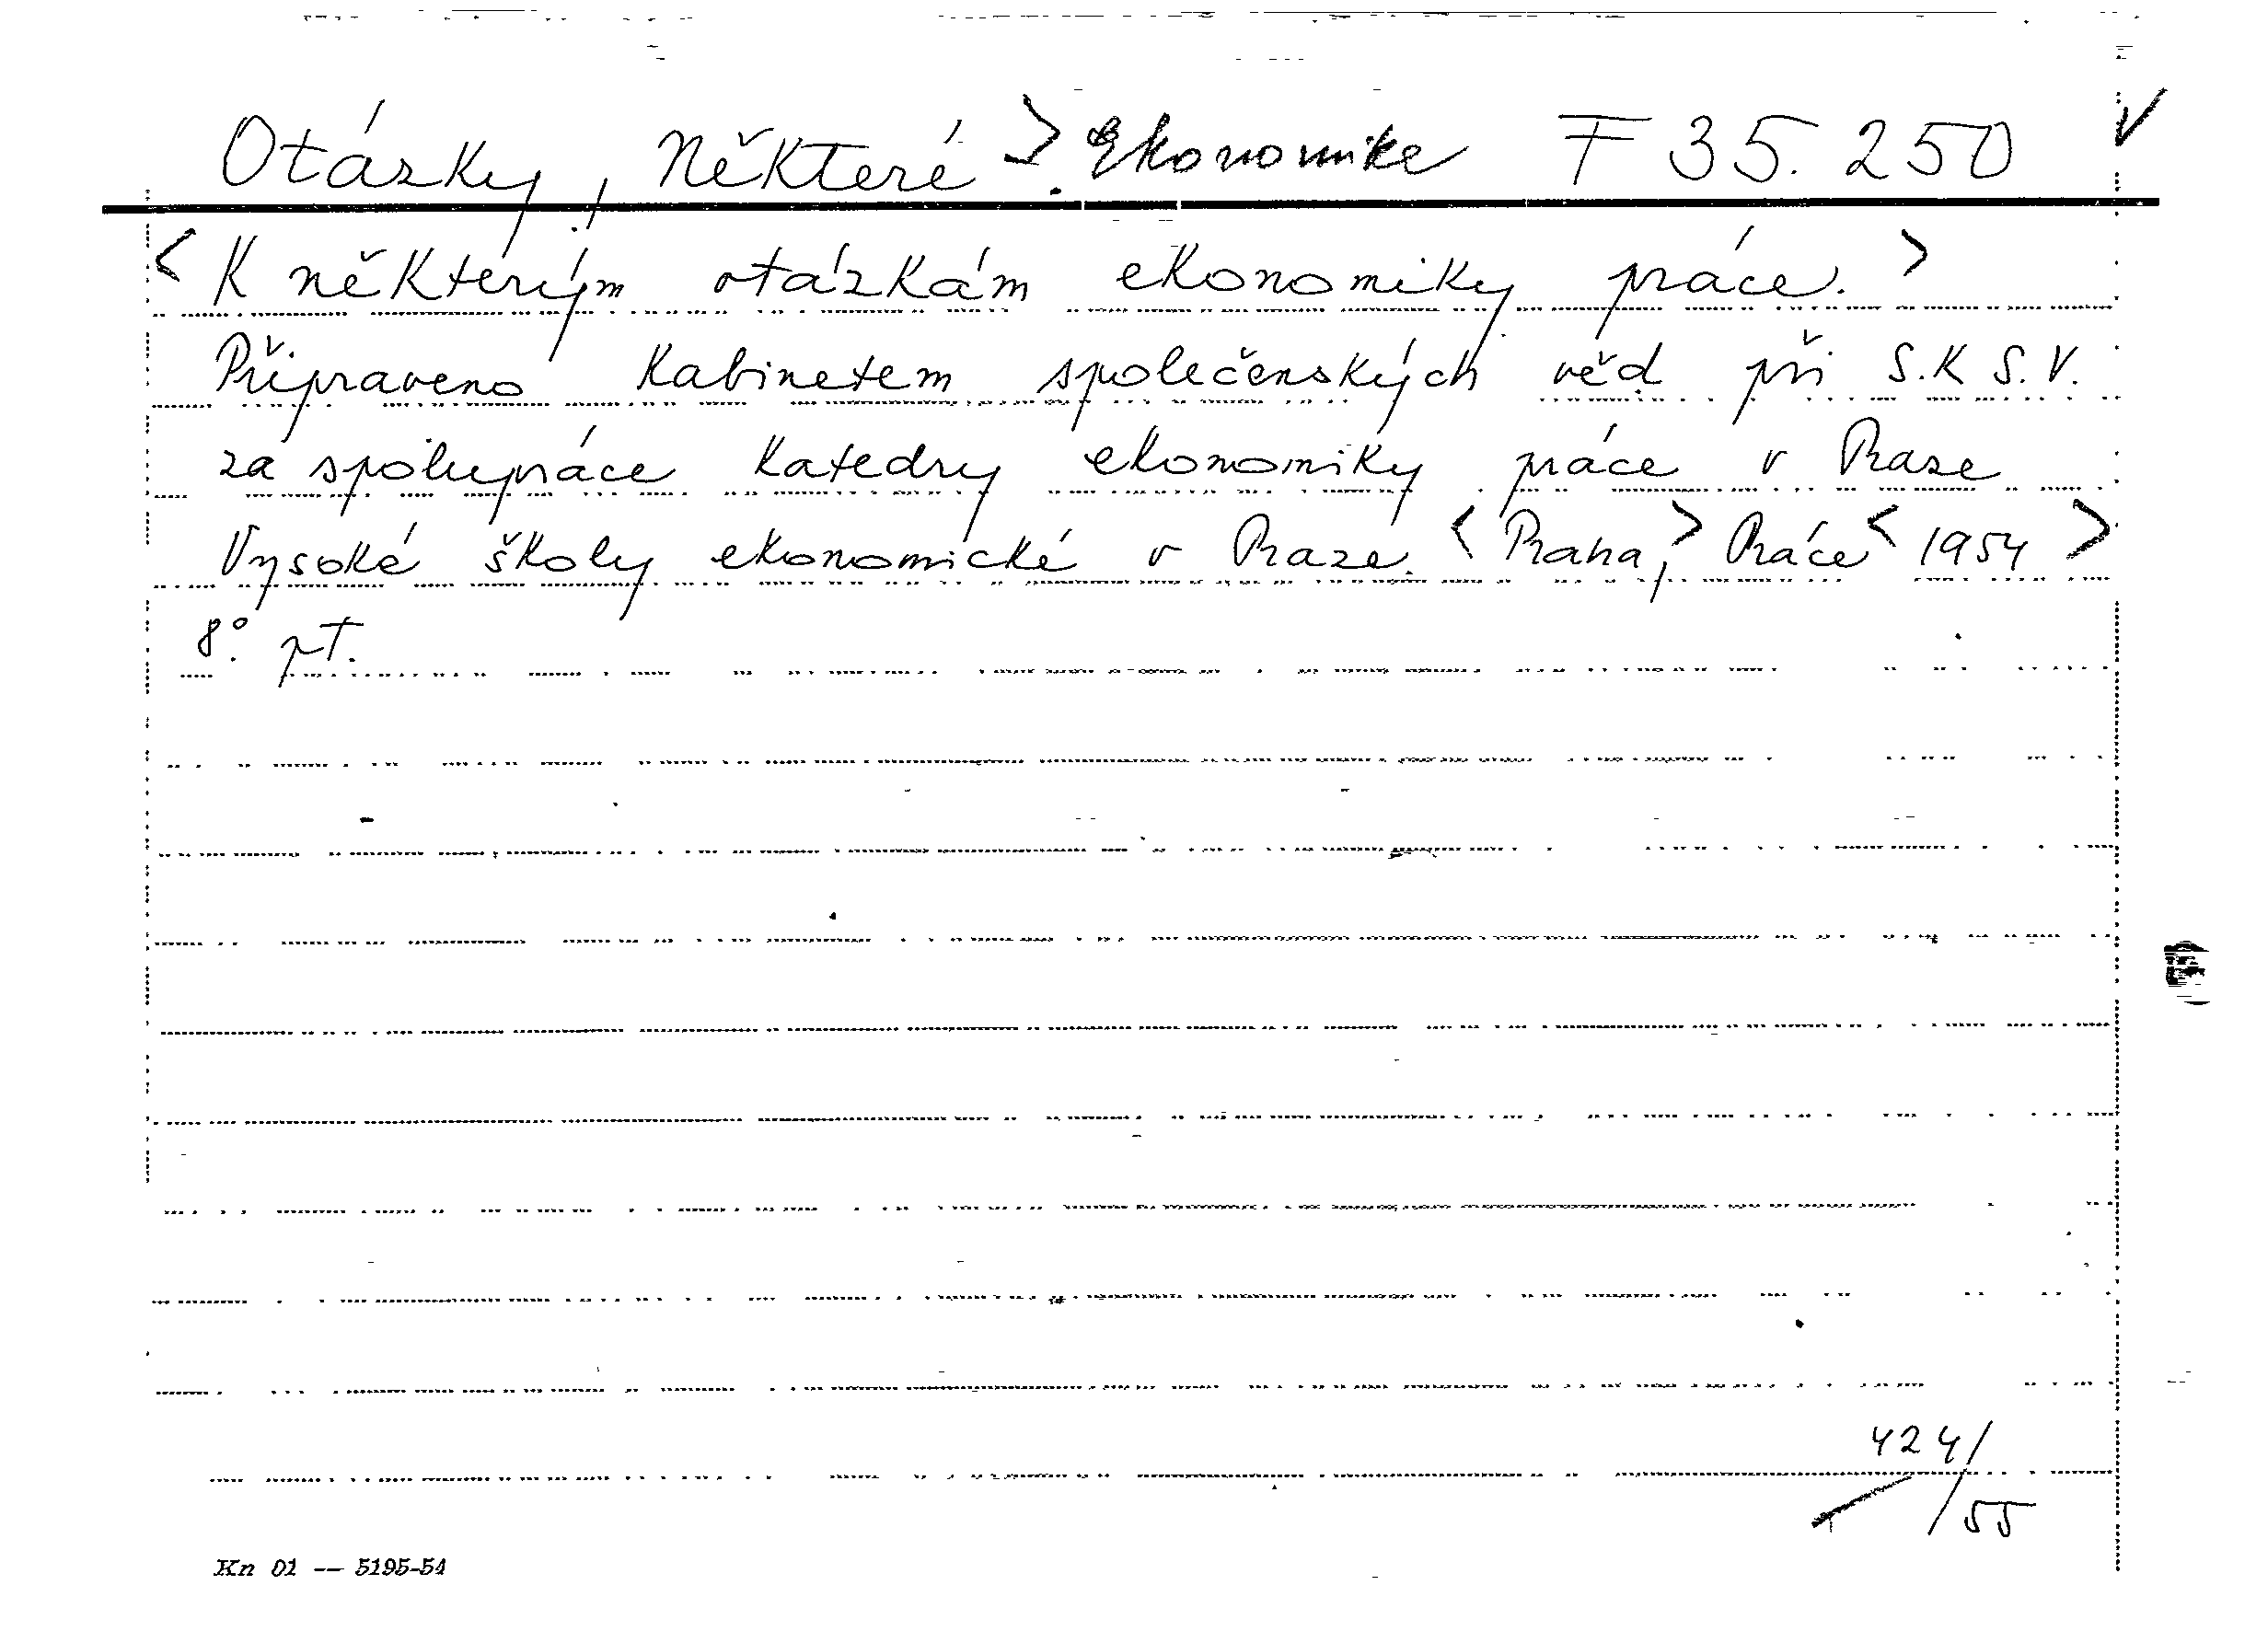 Otázky, některé > Ekonomike F 35.250 V
< K některým otázkám ekonomiky práce. >
Připraveno Kabinetem společenských věd při S.K S.V.
za spolupráce Katedry ekonomiky práce v Praze
Vysoké školy ekonomické v Praze. < Praha, > Práce < 1954 >
8°. pT.
424/
/55
Kn 01 — 5195-54